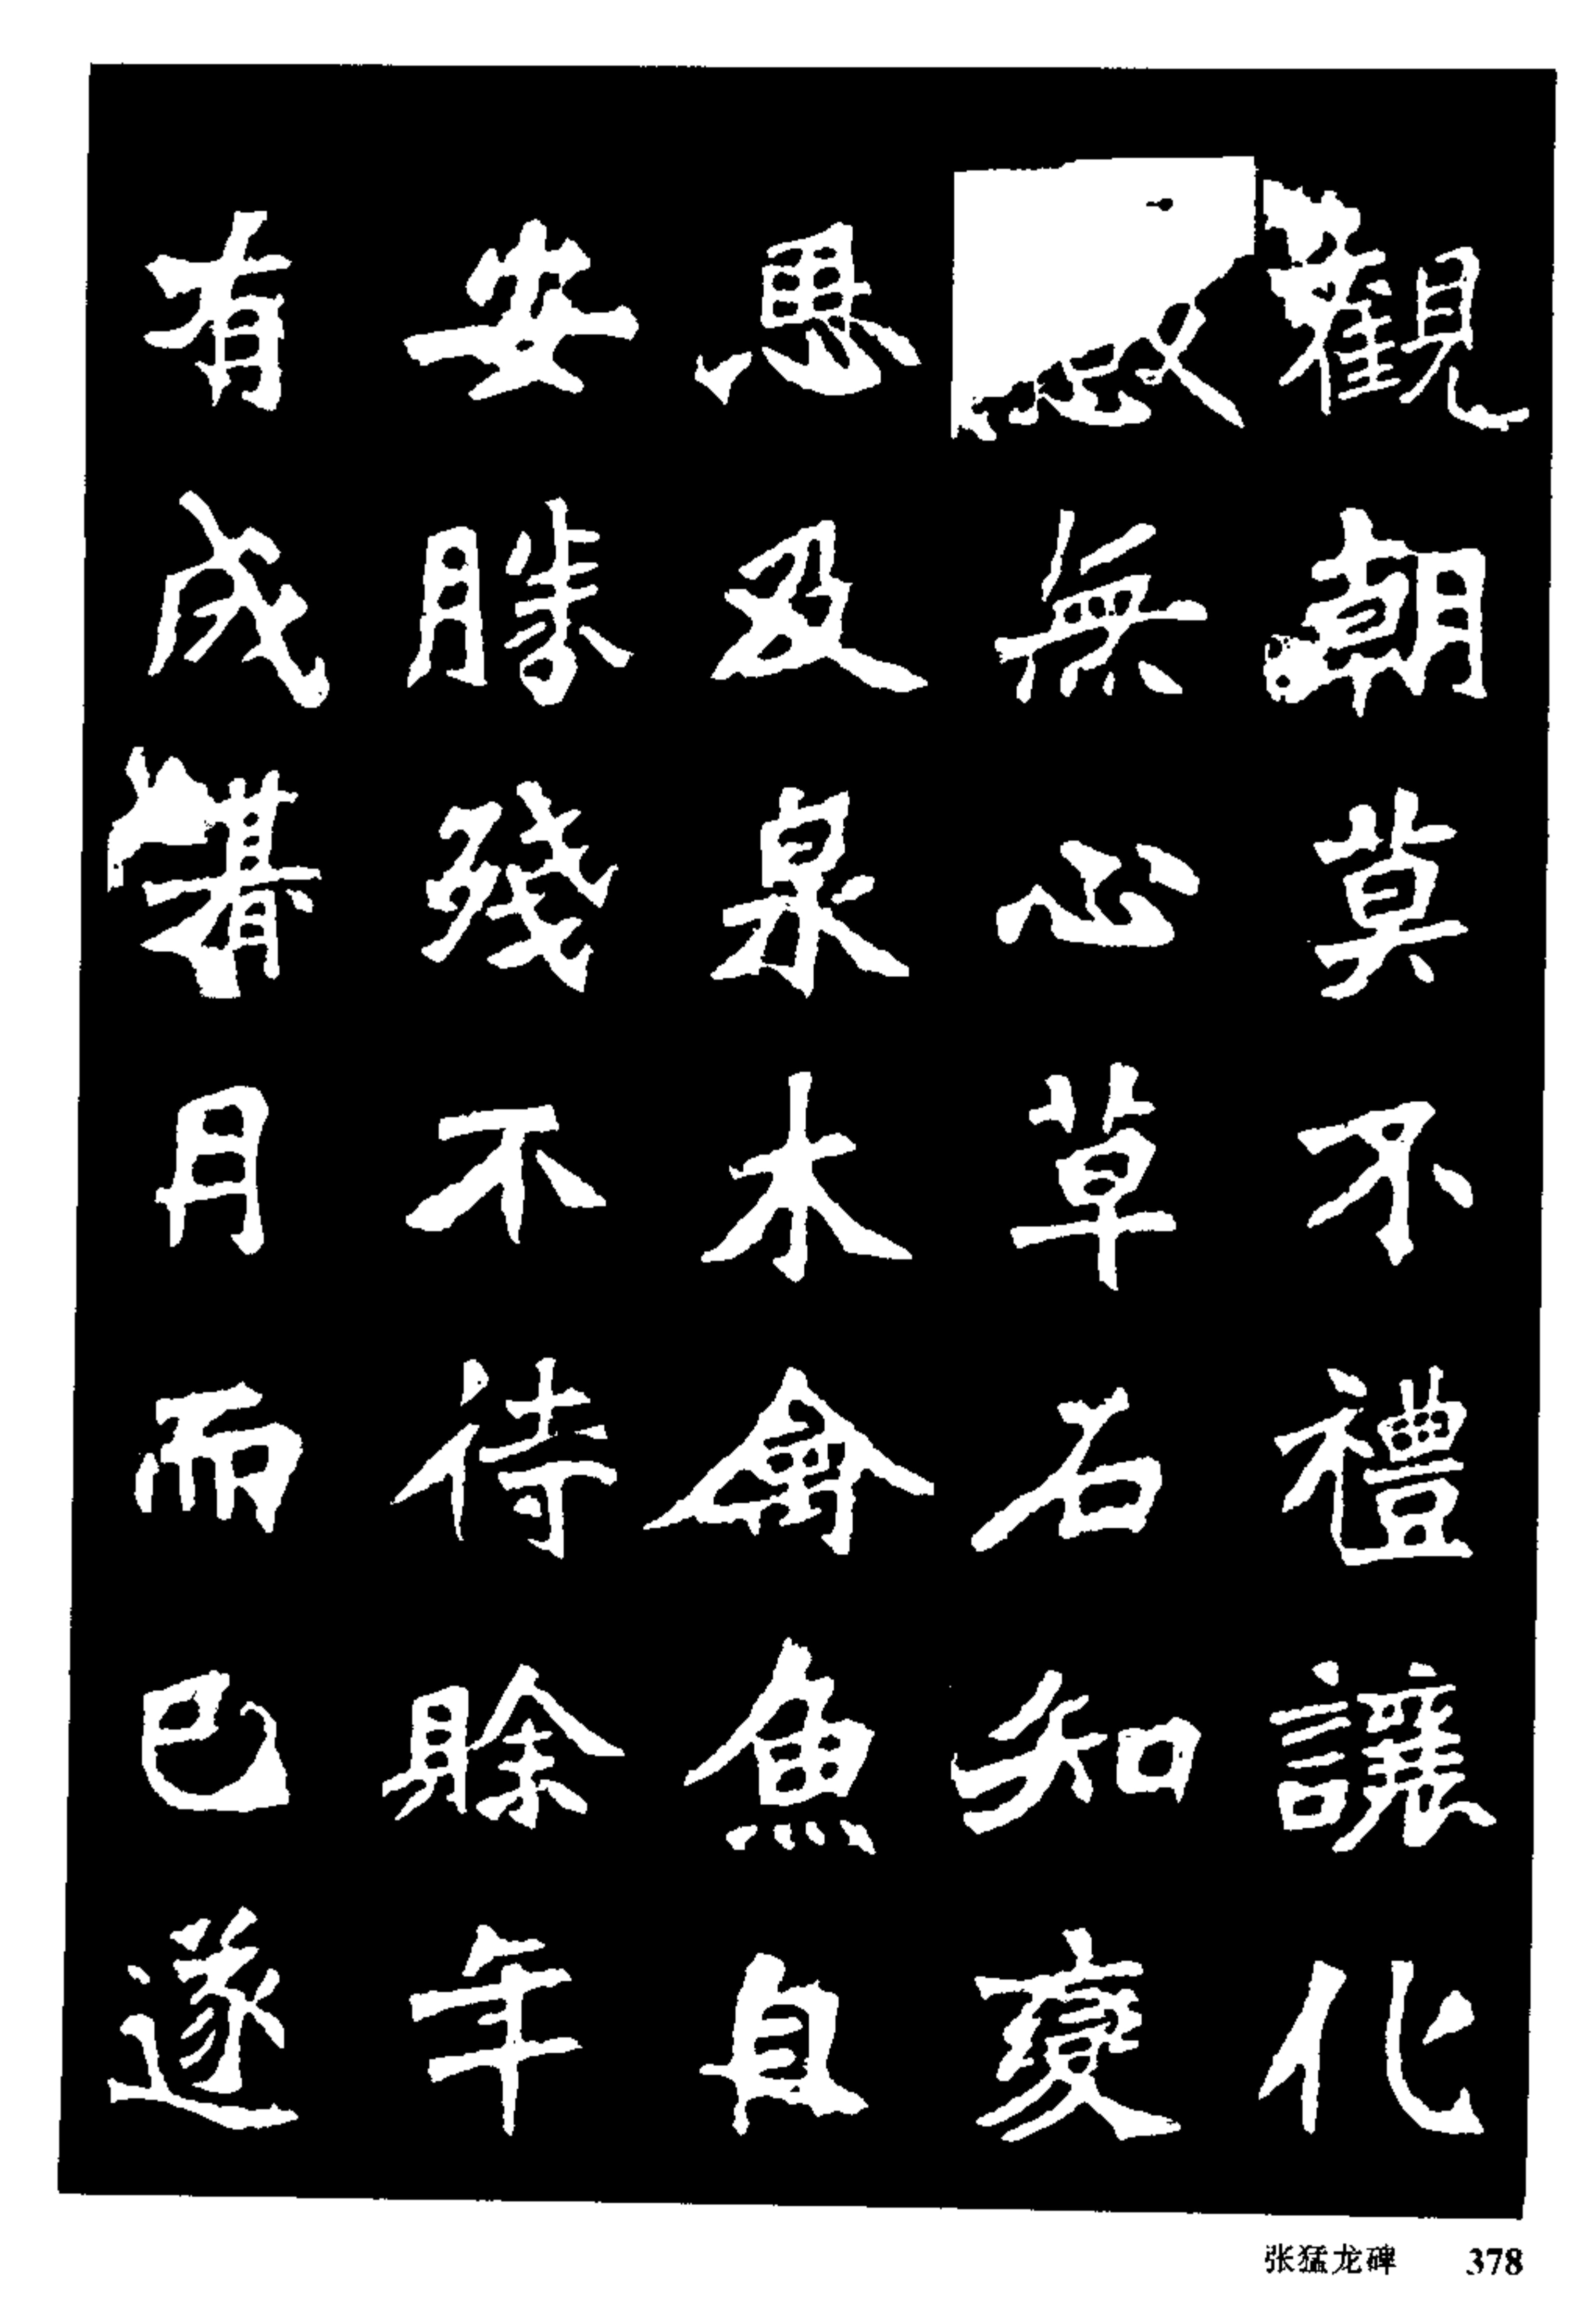 觀朝莫不禮讓化
無心草石知變
愚及泉木禽魚自
安勝殘不待賒年
有成朞月而已遂
张猛龙碑 378